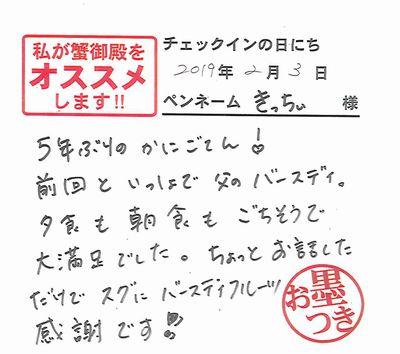 私が蟹御殿を
オススメ
します!!
チェックインの日にち
2019年 2月 3日
ペンネーム きっちぃ 様
5年ぶりの かにごてん!
前回と いっしょで 父の バースディ。
夕食も 朝食も ごちそうで
大満足でした。ちょっと お話した
だけで スグに バースディフルーツ
感謝です!!
お墨つき